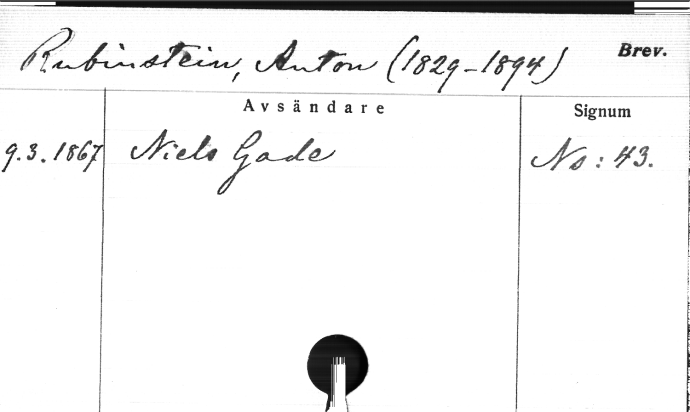 Rubinstein, Anton (1829-1894) Brev.
Avsändare Signum
9.3.1867 Niels Gade Ns: 43.